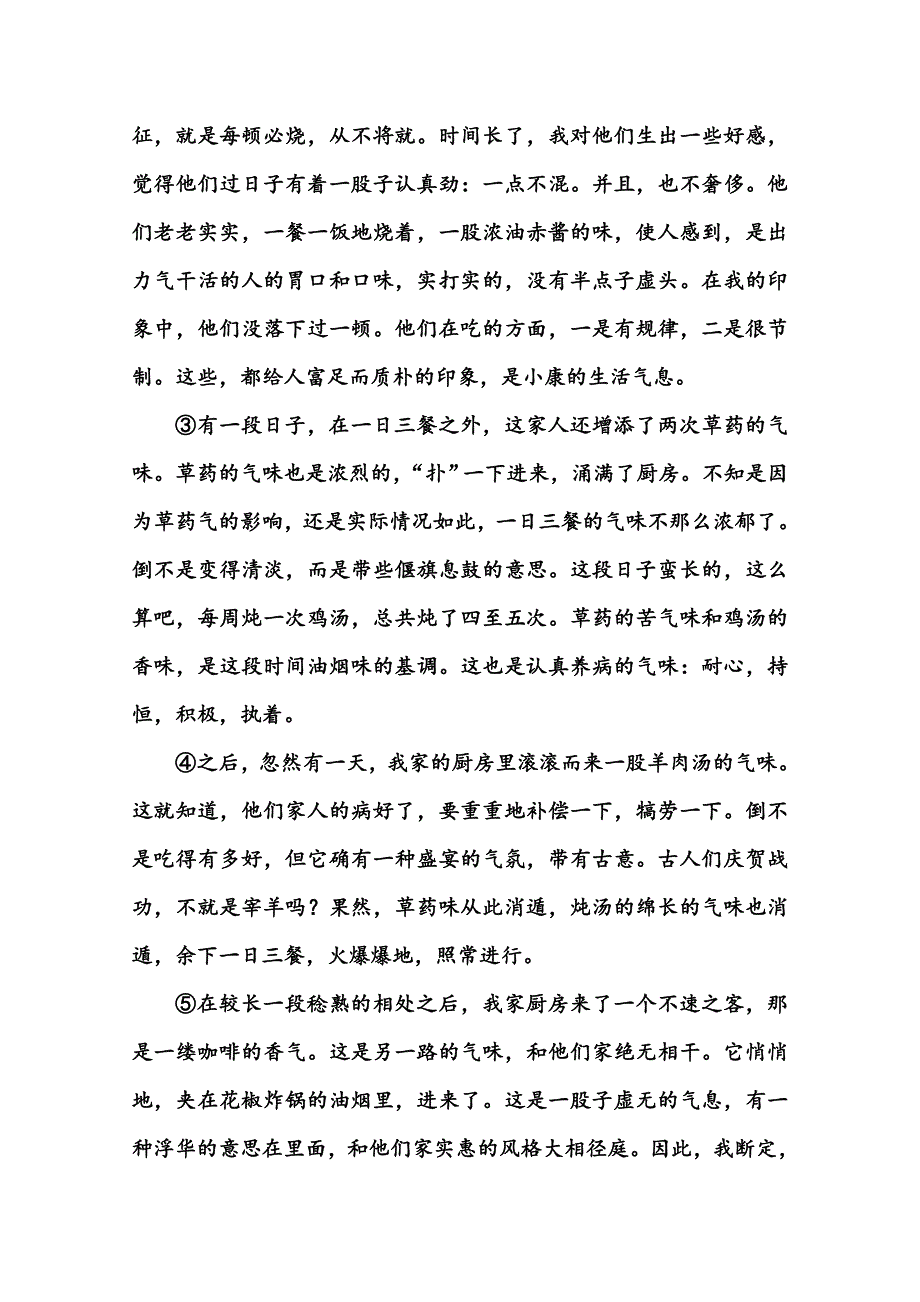 征，就是每顿必烧，从不将就。时间长了，我对他们生出一些好感，
觉得他们过日子有着一股子认真劲：一点不混。并且，也不奢侈。他
们老老实实，一餐一饭地烧着，一股浓油赤酱的味，使人感到，是出
力气干活的人的胃口和口味，实打实的，没有半点子虚头。在我的印
象中，他们没落下过一顿。他们在吃的方面，一是有规律，二是很节
制。这些，都给人富足而质朴的印象，是小康的生活气息。
③有一段日子，在一日三餐之外，这家人还增添了两次草药的气
味。草药的气味也是浓烈的，“扑”一下进来，涌满了厨房。不知是因
为草药气的影响，还是实际情况如此，一日三餐的气味不那么浓郁了。
倒不是变得清淡，而是带些偃旗息鼓的意思。这段日子蛮长的，这么
算吧，每周炖一次鸡汤，总共炖了四至五次。草药的苦气味和鸡汤的
香味，是这段时间油烟味的基调。这也是认真养病的气味：耐心，持
恒，积极，执着。
④之后，忽然有一天，我家的厨房里滚滚而来一股羊肉汤的气味。
这就知道，他们家人的病好了，要重重地补偿一下，犒劳一下。倒不
是吃得有多好，但它确有一种盛宴的气氛，带有古意。古人们庆贺战
功，不就是宰羊吗？果然，草药味从此消遁，炖汤的绵长的气味也消
遁，余下一日三餐，火爆爆地，照常进行。
⑤在较长一段稔熟的相处之后，我家厨房来了一个不速之客，那
是一缕咖啡的香气。这是另一路的气味，和他们家绝无相干。它悄悄
地，夹在花椒炸锅的油烟里，进来了。这是一股子虚无的气息，有一
种浮华的意思在里面，和他们家实惠的风格大相径庭。因此，我断定，